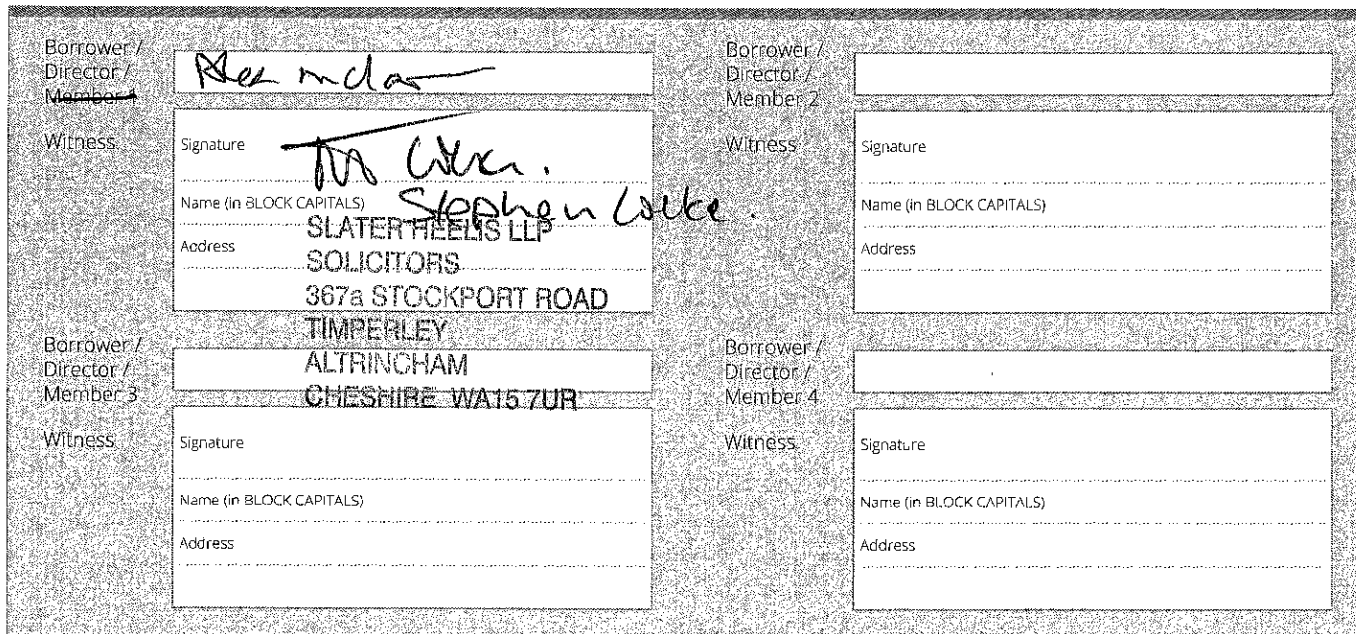 Borrower /
Director /
Member 1
Witness
Signature
Name (in BLOCK CAPITALS) Stephen
Address
SLATER HEELIS LLP
SOLICITORS
367a STOCKPORT ROAD
TIMPERLEY
ALTRINCHAM
CHESHIRE WA15 7UR
Borrower /
Director /
Member 2
Witness
Signature
Name (in BLOCK CAPITALS)
Address
Borrower /
Director /
Member 3
Witness
Signature
Name (in BLOCK CAPITALS)
Address
Borrower /
Director /
Member 4
Witness
Signature
Name (in BLOCK CAPITALS)
Address